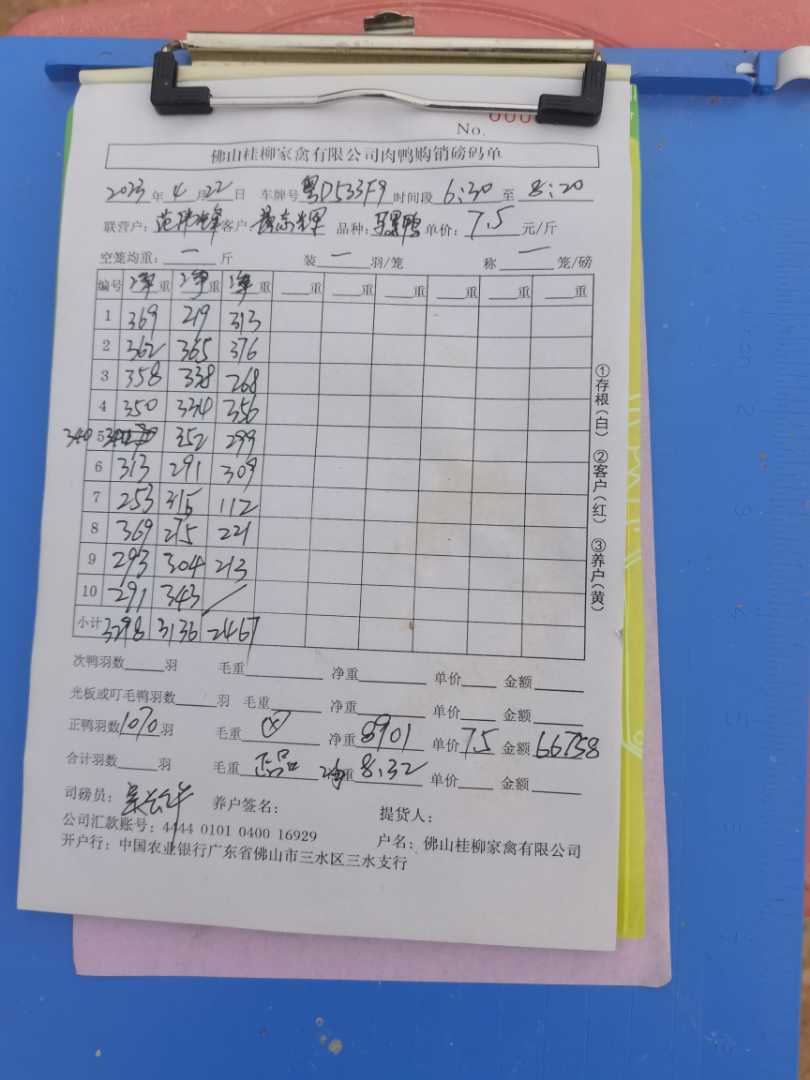 No. 000
佛山桂柳家禽有限公司肉鸭购销磅码单
2023年4月22日 车牌号粤D533F9时间段6:30至8:20
联营户: 客户 品种: 单价:7.5元/斤
空笼均重:一斤 装一羽/笼 称一笼/磅
编号 净重 净重 净重 重 重 重 重 重 重
1 369 219 313
2 362 365 376
3 358 338 268
4 350 334 356
340 5 352 299
6 313 291 309
7 253 315 112
8 369 275 221
9 293 304 213
10 291 343 /
小计 3298 3136 2467
次鸭羽数 羽 毛重 净重 单价 金额
光板或叮毛鸭羽数 羽 毛重 净重 单价 金额
正鸭羽数1070羽 毛重ⓧ 净重8901 单价7.5 金额66758
合计羽数 羽 毛重正品 净重8.32 单价 金额
司磅员: 养户签名: 提货人:
公司汇款账号:4444 0101 0400 16929 户名:佛山桂柳家禽有限公司
开户行:中国农业银行广东省佛山市三水区三水支行
①存根(白) ②客户(红) ③养户(黄)